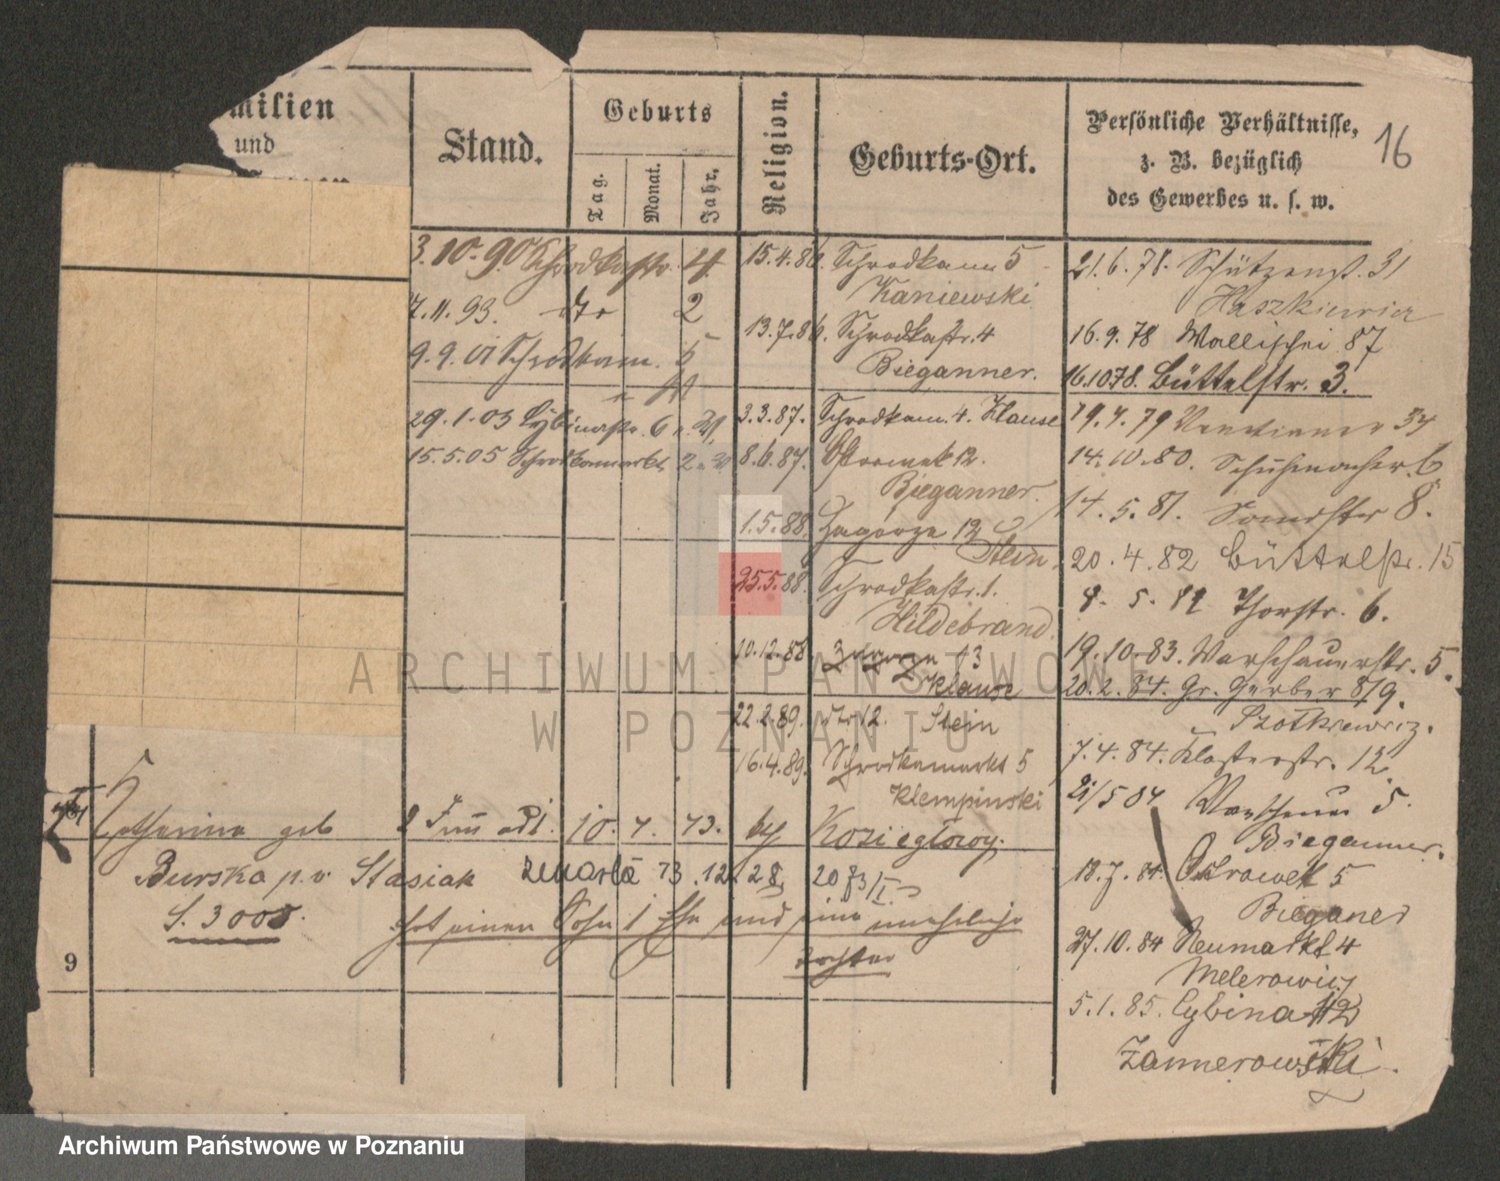 milien
und
Stand.
Geburts
Tag.
Monat.
Jahr.
Religion.
Geburts-Ort.
Persönliche Verhältnisse,
z. B. bezüglich
des Gewerbes u. s. w.
16
3.10.90 Schrodkastr. 4
7.11.93. dto 2
9.9. Schrodkam. 5
29.1.03 Cybinastr. 6
15.5.05 Schrodkamarkt 2
15.4.86. Schrodkam 5
Kaniewski
13.7.86. Schrodkastr. 4
Bieganner.
3.3.87. Schrodkam. 4. Klause
8.6.87. Ostrowek 12.
Bieganner.
1.5.88. Zagorze 12
Stein
25.5.88. Schrodkastr. 1.
Hildebrand.
10.12.88. Zagorze 13
Klause
22.2.89. dto 12. Stein
16.4.89. Schrodkamarkt 5
Klempinski
21.6.78. Schützenst. 31
Haszkiewicz
16.9.78 Wallischei 87
16.10.78. Büttelstr. 3.
19.7.79 Venetianer 34
14.10.80. Schuhmacher 6
14.5.81. Sandstr 8.
20.4.82 Büttelstr. 15
8.5.82 Thorstr. 6.
19.10.83. Warschauerstr. 5.
20.2.84. Gr. Gerber 8/9.
Piotkiewicz.
7.4.84. Klosterstr. 12
21/5 84 Warschauer 5.
Bieganner.
18.7.84. Ostrowek 5
Bieganer
27.10.84 Neumarkt 4
Melerowicz
5.1.85. Cybina 12
Zannerowski.
Catharina geb 10. 7. 73. Koziegłowy.
Burska p. v. Stasiak zmarła 73.12 28
S. 3000.
hat einen Sohn und eine uneheliche
Tochter
9
ARCHIWUM PAŃSTWOWE
W POZNANIU
Archiwum Państwowe w Poznaniu